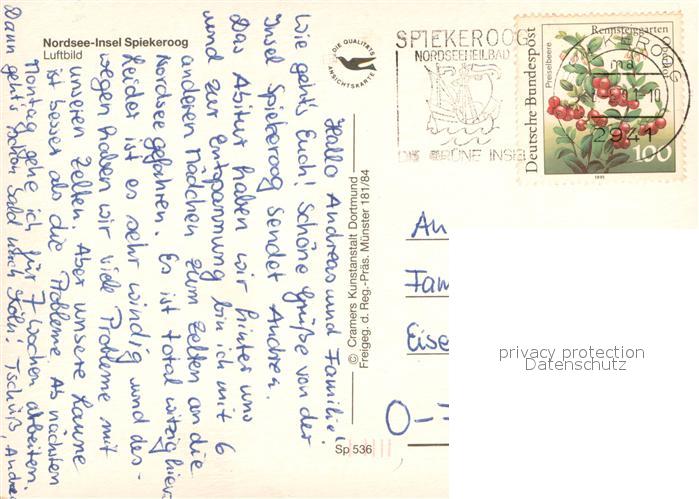 Nordsee-Insel Spiekeroog
Luftbild
DIE QUALITÄTS
ANSICHTSKARTE
Hallo Andreas und Familie!
Wie geht's Euch! Schöne Grüße von der
Insel Spiekeroog sendet Andrea.
Das Abitur haben wir hinter uns
und zur Entspannung bin ich mit 6
anderen Mädchen zum Zelten an die
Nordsee gefahren. Es ist total witzig hier.
Leider ist es sehr windig und des-
wegen haben wir viele Probleme mit
unseren Zelten. Aber unsere Laune
ist besser als die Probleme. Ab nächsten
Montag gehe ich für 7 Wochen arbeiten.
Dann geht's schon bald nach Köln! Tschüß, Andrea
© Cramers Kunstanstalt Dortmund
Freigeg. d. Reg.-Präs. Münster 181/84
Sp 536
SPIEKEROOG
NORDSEEHEILBAD
DIE GRÜNE INSEL
2941
Deutsche Bundespost
Preiselbeere
Rennsteiggarten
100
1991
An
Fam
Eise
O-7
privacy protection
Datenschutz